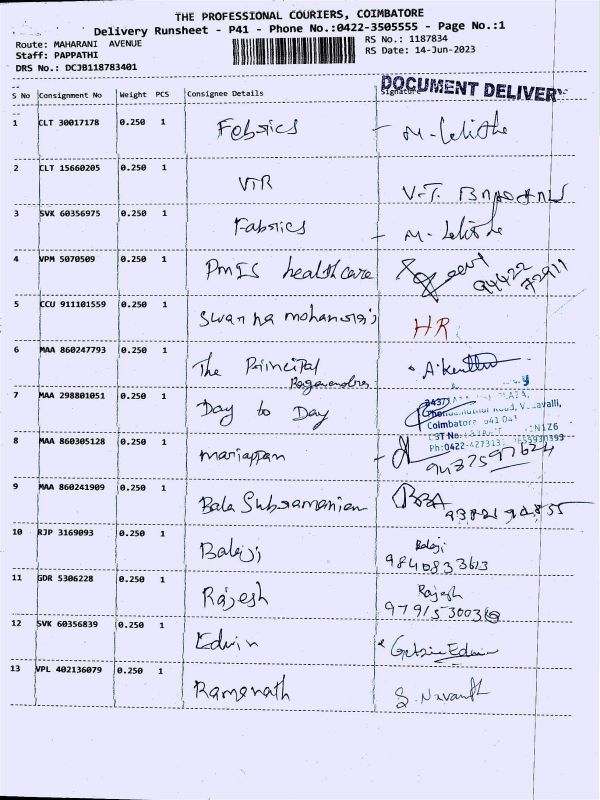 THE PROFESSIONAL COURIERS, COIMBATORE
Delivery Runsheet - P41 - Phone No.:0422-3505555 - Page No.:1
Route: MAHARANI AVENUE
RS No.: 1187834
Staff: PAPPATHI
RS Date: 14-Jun-2023
DRS No.: DCJB118783401
DOCUMENT DELIVERY
S No Consignment No Weight PCS Consignee Details Signature
1 CLT 30017178 0.250 1 Fabrics
2 CLT 15660205 0.250 1 VTR V.T.
3 SVK 60356975 0.250 1 Fabrics
4 VPM 5070509 0.250 1 PMIS healthcare 94422 72911
5 CCU 911101559 0.250 1 Swarna HR
6 MAA 860247793 0.250 1 The Principal
7 MAA 298801051 0.250 1 Day to Day
Coimbatore 641 041
8 MAA 860305128 0.250 1 Mariappan
9 MAA 860241909 0.250 1 Bala Subramanian
10 RJP 3169093 0.250 1 Balaji Balaji
9840833613
11 GDR 5306228 0.250 1 Rajesh Rajesh
12 SVK 60356839 0.250 1 Edwin Edwin
13 VPL 402136079 0.250 1 Ramanath